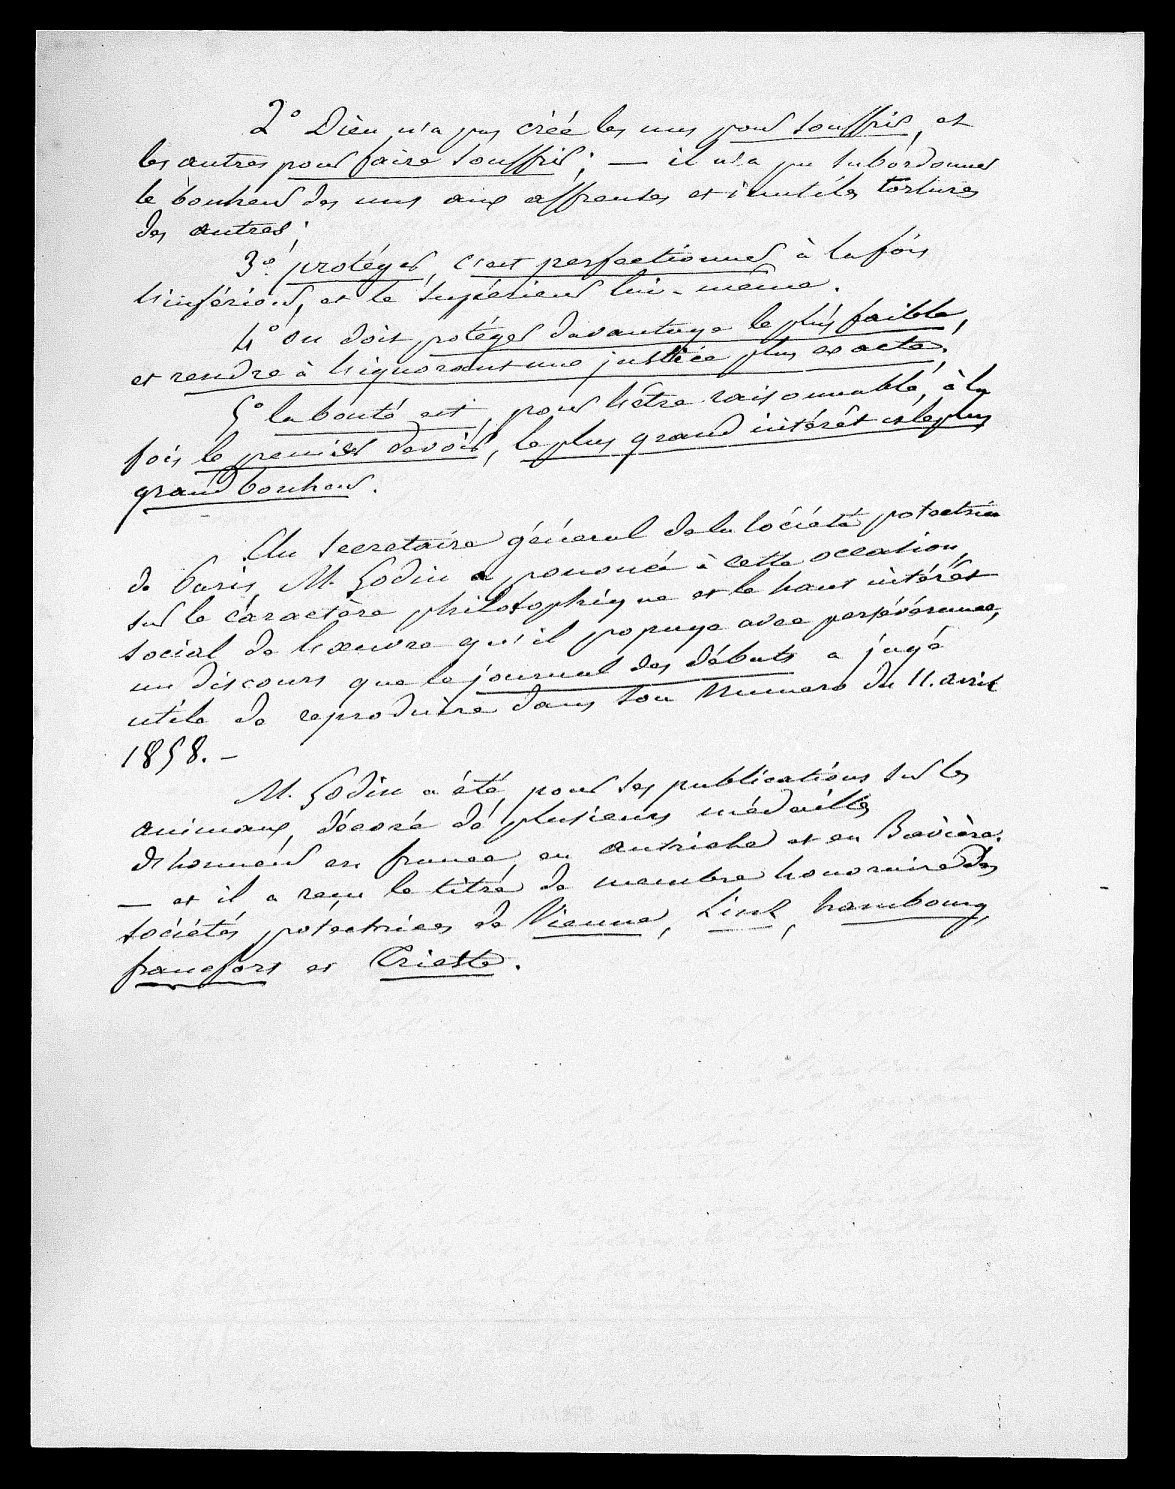 2° Dieu n'a pas créé les uns pour souffrir, et
les autres pour faire souffrir; — il n'a pu subordonner
le bonheur des uns aux affreuses et inutiles tortures
des autres;
3° protéger, c'est perfectionner à la fois
l'inférieur, et le supérieur lui-même.
4° on doit protéger davantage le plus faible,
et rendre à l'ignorant une justice plus exacte.
5° la bonté est, pour l'être raisonnable, à la
fois le premier devoir, le plus grand intérêt et le plus
grand bonheur.
Secretaire général de la Société protectrice
de Paris, M. Godin a prononcé à cette occasion,
sur le caractère philosophique et le haut intérêt
social de l'œuvre qu'il propage avec persévérance,
un discours que le journal des débats a jugé
utile de reproduire dans son Numero du 11. avril
1858. —
M. Godin a été, pour ses publications sur les
animaux, décoré de plusieurs médailles
d'honneur en france, en autriche et en Bavière.
— et il a reçu le titre de membre honoraire des
sociétés protectrices de Vienne, Linz, hambourg,
francfort et Trieste.